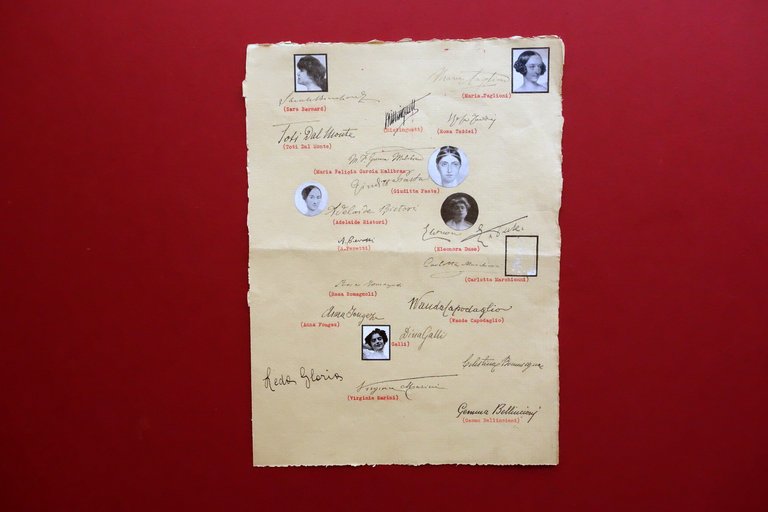 Maria Taglioni
(Maria Taglioni)
(Sara Bernard)
(Mistinguett)
(Rosa Taddei)
Toti Dal Monte
(Toti Dal Monte)
(Maria Felicia Garcia Malibran)
Giuditta Pasta
(Giuditta Pasta)
Adelaide Ristori
(Adelaide Ristori)
(A. Pavesti)
(Eleonora Duse)
Carlotta Marchionni
(Carlotta Marchionni)
Rosa Romagnoli
(Rosa Romagnoli)
Wanda Capodaglio
(Wanda Capodaglio)
Anna Fougez
(Anna Fougez)
Dina Galli
Galli)
Leda Gloria
Virginia Marini
(Virginia Marini)
Gemma Bellincioni
(Gemma Bellincioni)